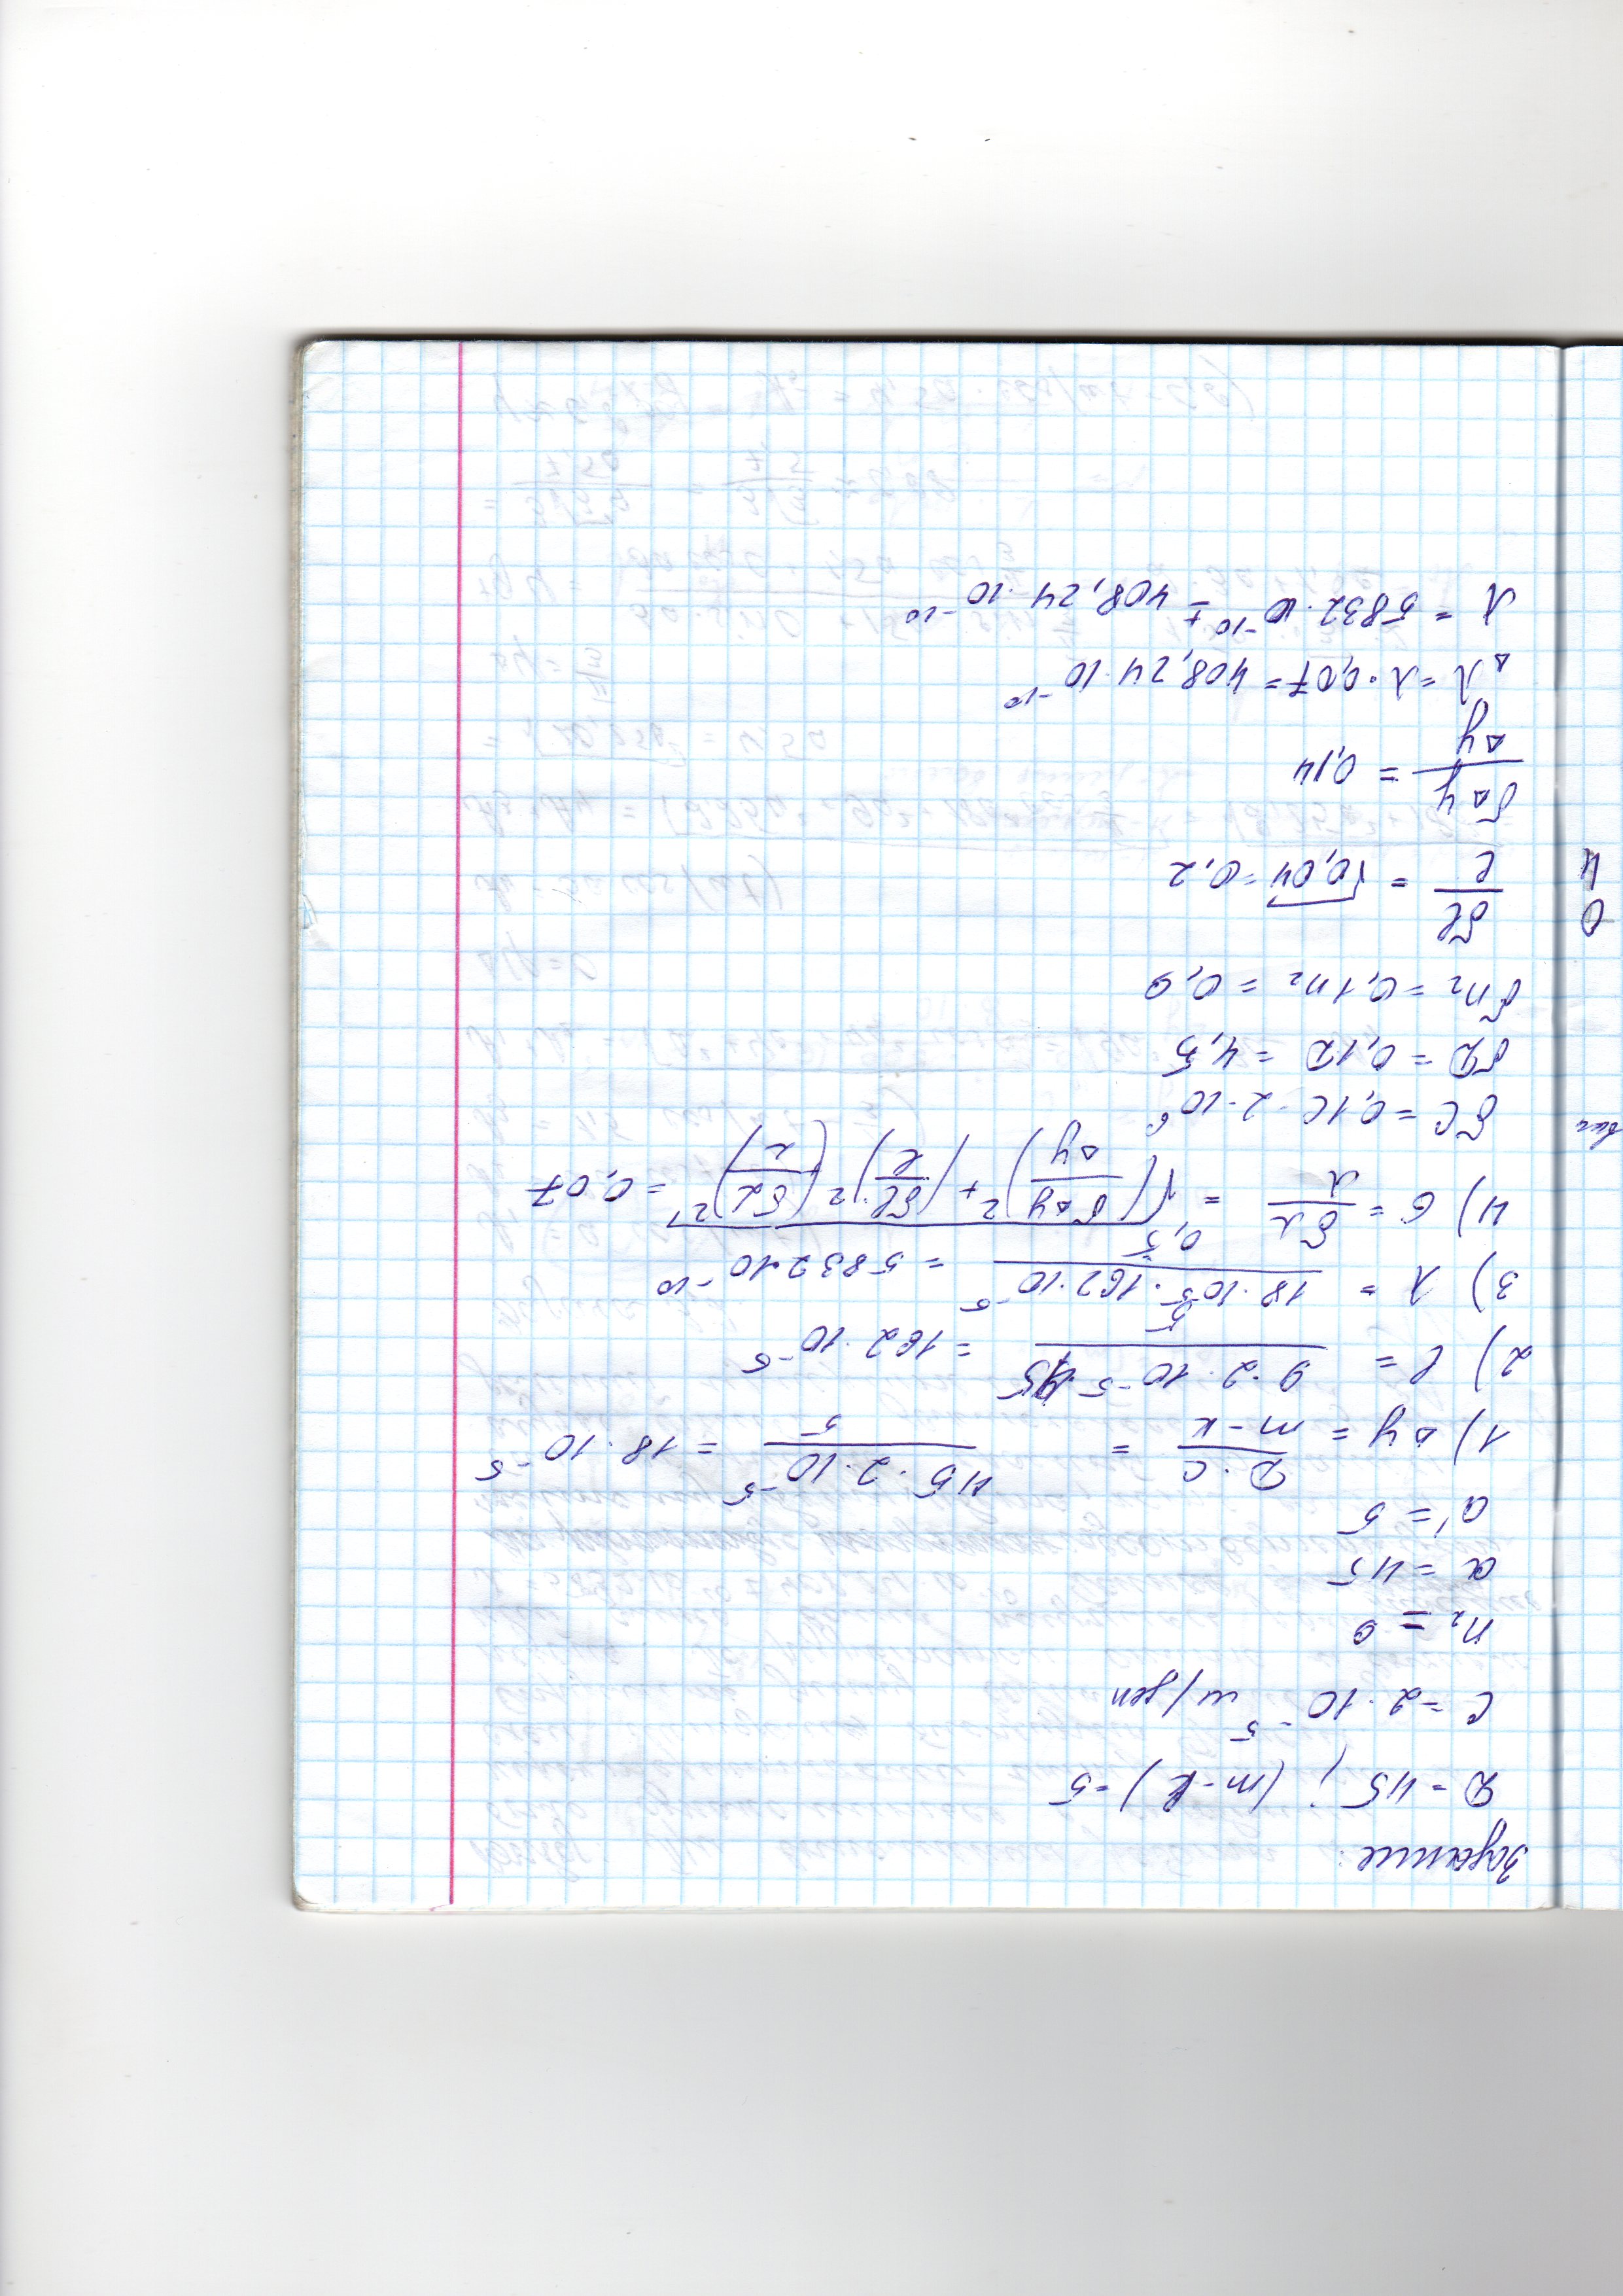 Задание:
D = 45 ; (m - k) = 5
C = 2 · 10^-5 м/деп
n₂ = 9
a = 45
a' = 5
1) Δy = D · C / m - k = 45 · 2 · 10^-5 / 5 = 18 · 10^-5
2) l = 9 · 2 · 10^-5 · 45 / 5 = 162 · 10^-5
3) λ = 18 · 10^-5 · 162 · 10^-5 / 0,5 = 5832 · 10^-10
4) б = δλ / λ = √((δΔy / Δy)² + (δl / l)² (δL / L)²) = 0,07
δC = 0,1C - 2 · 10^6
δD = 0,1D = 4,5
δn₂ = 0,1n₂ = 0,9
δl / l = √0,04 = 0,2
δΔy / Δy = 0,14
Δλ = λ · 0,07 = 408,24 · 10^-10
λ = 5832 · 10^-10 ± 408,24 · 10^-10